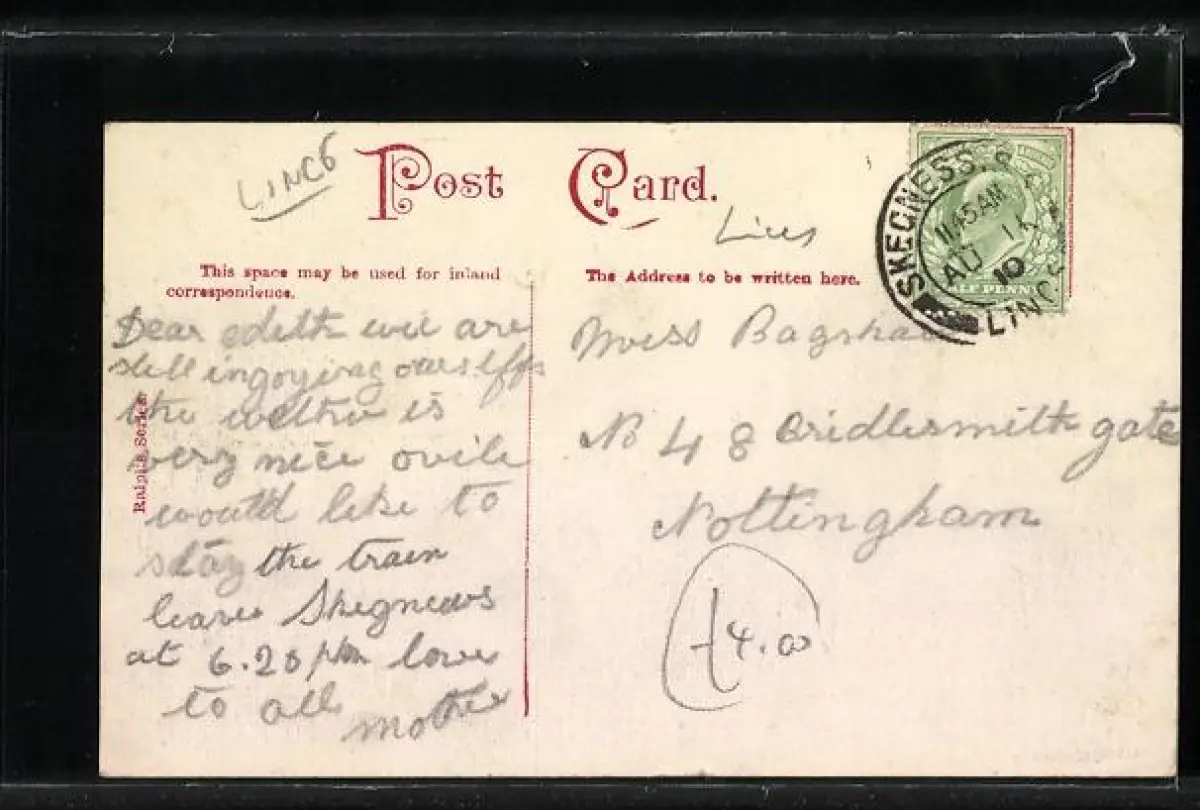 LINCS
Post Card.
Lincs
This space may be used for inland
correspondence.
The Address to be written here.
SKEGNESS. S.O.
11.45 AM
AU 11
10
LINCS
HALF PENNY
Dear edith wie are
still ingoying ourslfs
the wethre is
very nice ovile
would like to
stay the train
leaves Skegnews
at 6.20 pm love
to all
mother
Ralph's Series
Miss Bagshaw
No 48 Bridlesmith gate
Nottingham
£4.00